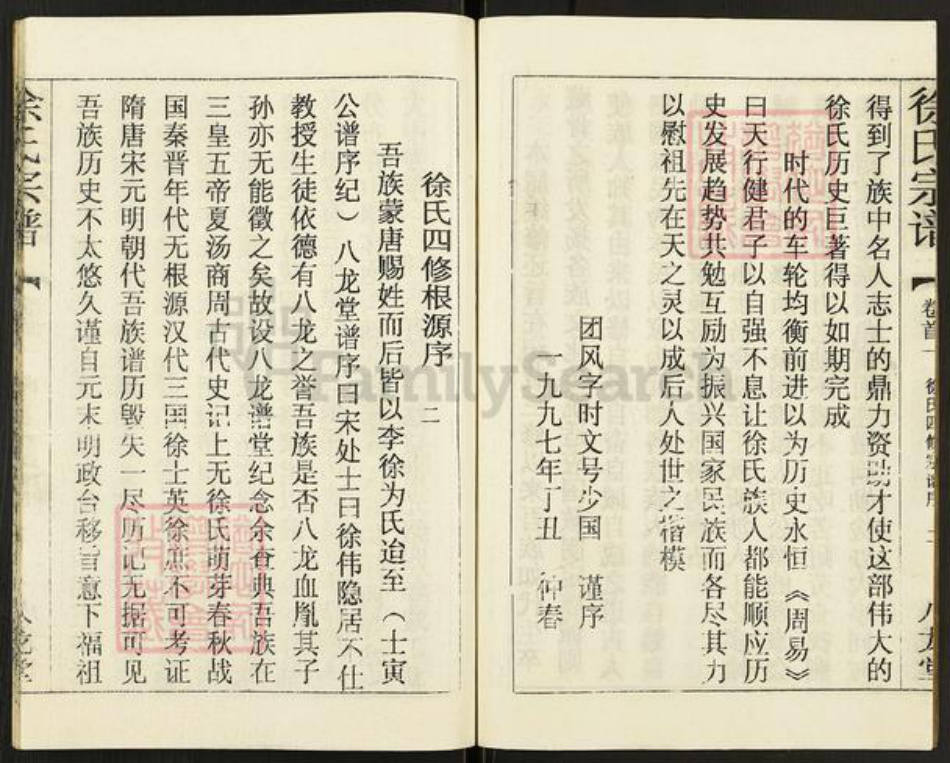 徐氏宗谱
卷首一 徐氏四修宗谱序 二 八龙堂
得到了族中名人志士的鼎力资助才使这部伟大的
徐氏历史巨著得以如期完成
时代的车轮均衡前进以为历史永恒《周易》
曰天行健君子以自强不息让徐氏族人都能顺应历
史发展趋势共勉互励为振兴国家民族而各尽其力
以慰祖先在天之灵以成后人处世之楷模
团风字时文号少国 谨序
一九九七年丁丑 仲春
徐氏四修根源序 二
吾族蒙唐赐姓而后皆以李徐为氏迨至（士寅
公谱序纪）八龙堂谱序曰宋处士曰徐伟隐居不仕
教授生徒依德有八龙之誉吾族是否八龙血胤其子
孙亦无能徵之矣故设八龙谱堂纪念余查典吾族在
三皇五帝夏汤商周古代史记上无徐氏萌芽春秋战
国秦晋年代无根源汉代三国徐士英徐庶不可考证
隋唐宋元明朝代吾族谱历毁失一尽历记无据可见
吾族历史不太悠久谨自元末明政台移旨意下福祖
徐氏宗谱
八龙堂
FamilySearch